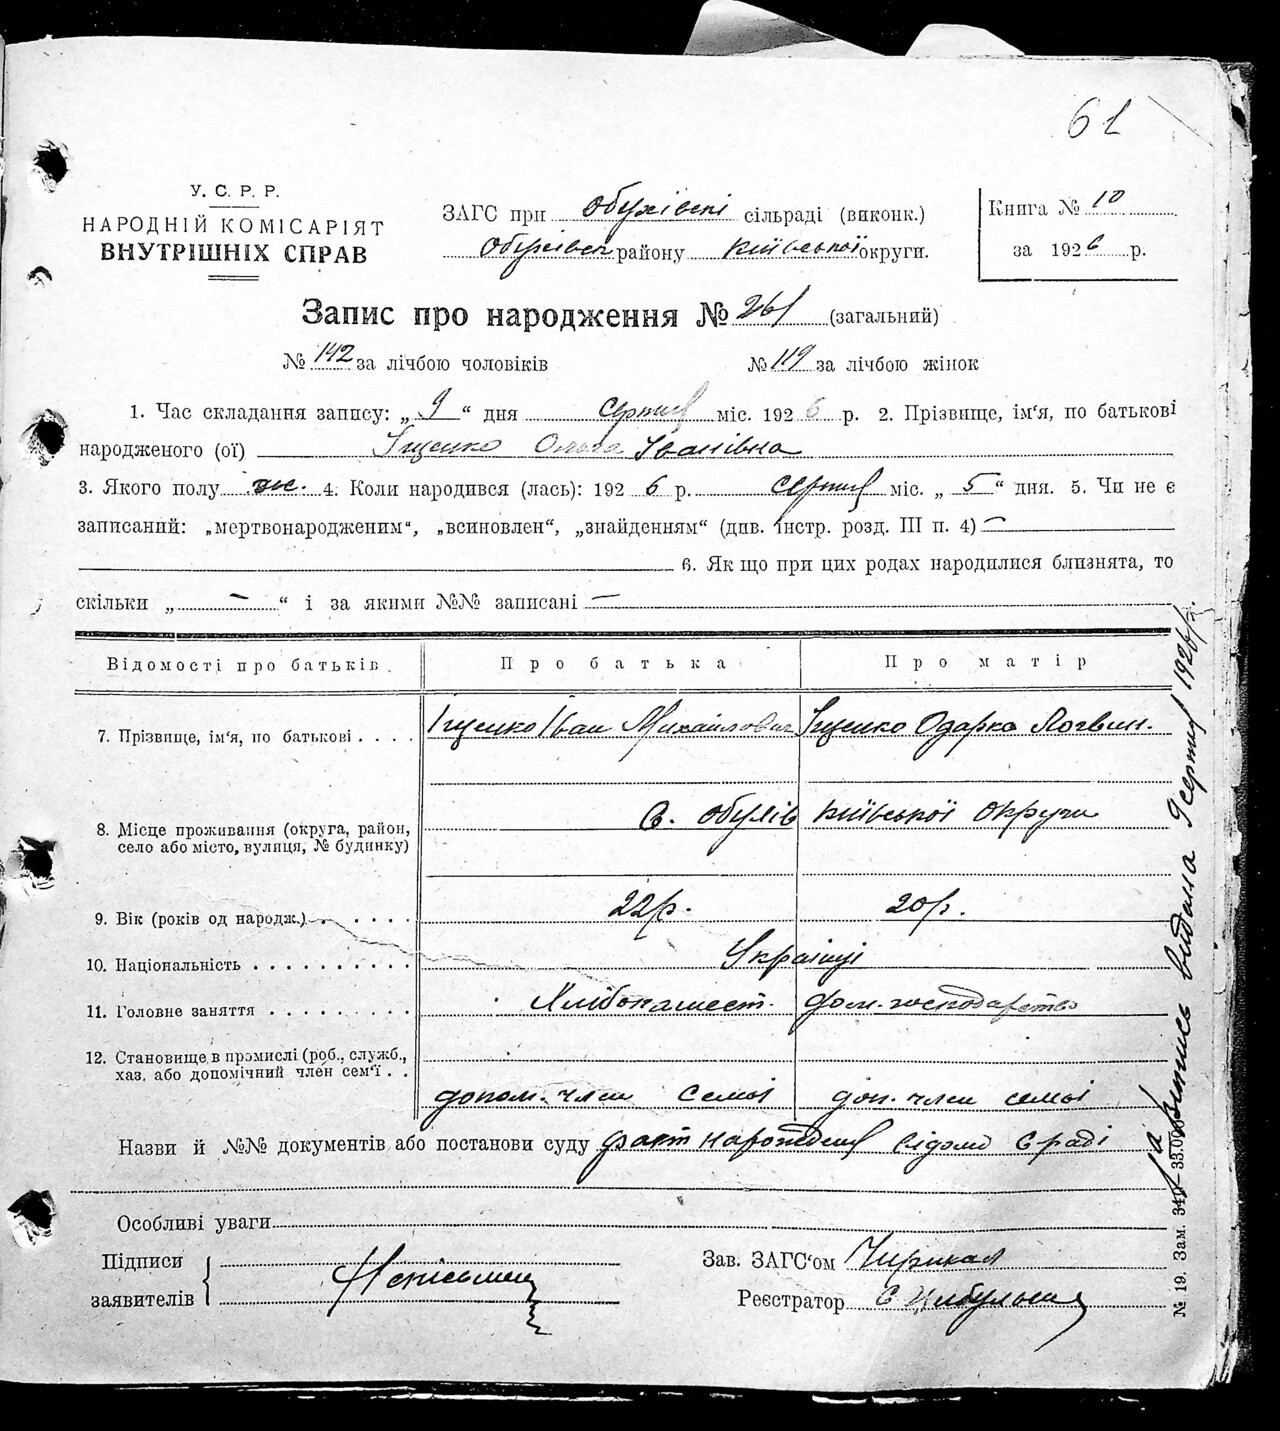 61
У. С. Р. Р.
НАРОДНІЙ КОМІСАРІЯТ
ВНУТРІШНІХ СПРАВ
ЗАГС при Обухівскі сільраді (виконк.)
Обухівск району Київської округи.
Книга № 10
за 1926 р.
Запис про народження № 261 (загальний)
№ 142 за лічбою чоловіків № 119 за лічбою жінок
1. Час складання запису: „ 9 “ дня серпня міс. 1926 р. 2. Прізвище, ім‘я, по батькові
народженого (ої) Іщенко Ольга Іванівна
3. Якого полу жін. 4. Коли народився (лась): 1926 р. серпня міс. „ 5 “ дня. 5. Чи не є
записаний: „мертвонародженим“, „всиновлен“, „знайденням“ (див. інстр. розд. III п. 4) —
6. Як що при цих родах народилися близнята, то
скільки „ — “ і за якими №№ записані —
Відомості про батьків. Про батька Про матір
7. Прізвище, ім‘я, по батькові . . . . Іщенко Іван Михайлович Іщенко Одарка Логвин.
8. Місце проживання (округа, район, село або місто, вулиця, № будинку) С. Обухів Київської округи
9. Вік (років од народж.) . . . . . 22 р. 20 р.
10. Національність . . . . . . . . . . Українці
11. Головне заняття . . . . . . . . . Хлібопашест. дом. господарство
12. Становище в промислі (роб., служб., хаз. або допомічний член сем‘ї . . допом. член семьі доп. член семьі
Назви й №№ документів або постанови суду факт народження відомо с/раді
Особливі уваги
Підписи
заявителів
Неписьмен
Зав. ЗАГС‘ом
Реєстратор
Витись видана 9 серпня 1926 р.
№ 19. Зам.